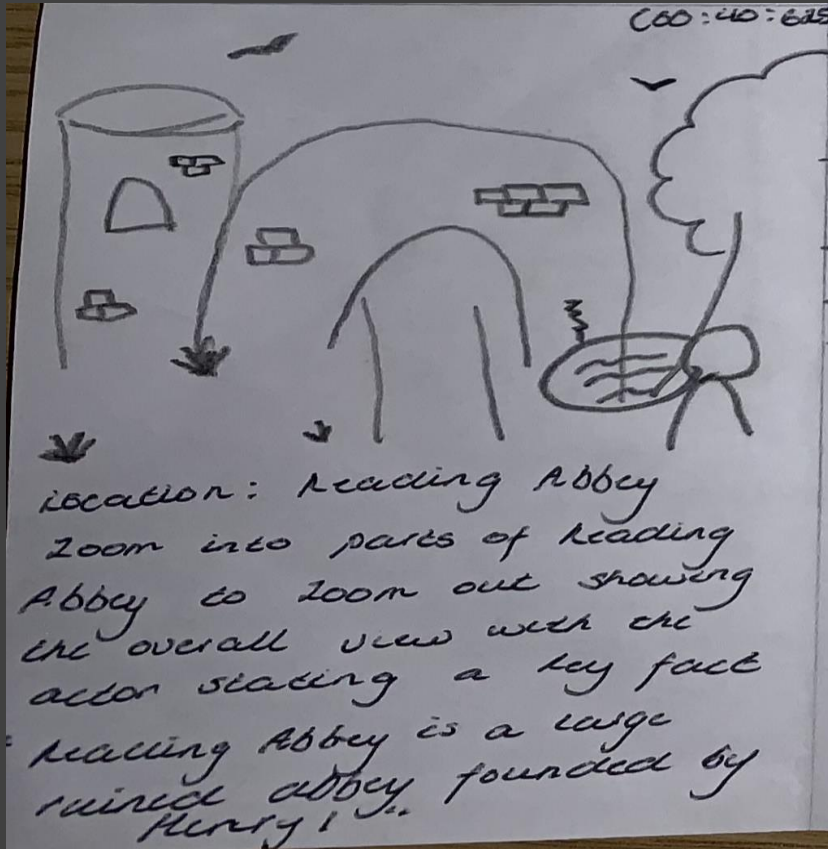 (00:40:625
Location: Reading Abbey
Zoom into parts of Reading
Abbey to zoom out showing
the overall view with the
actor stating a key fact
"Reading Abbey is a large
ruined abbey founded by
Henry I"